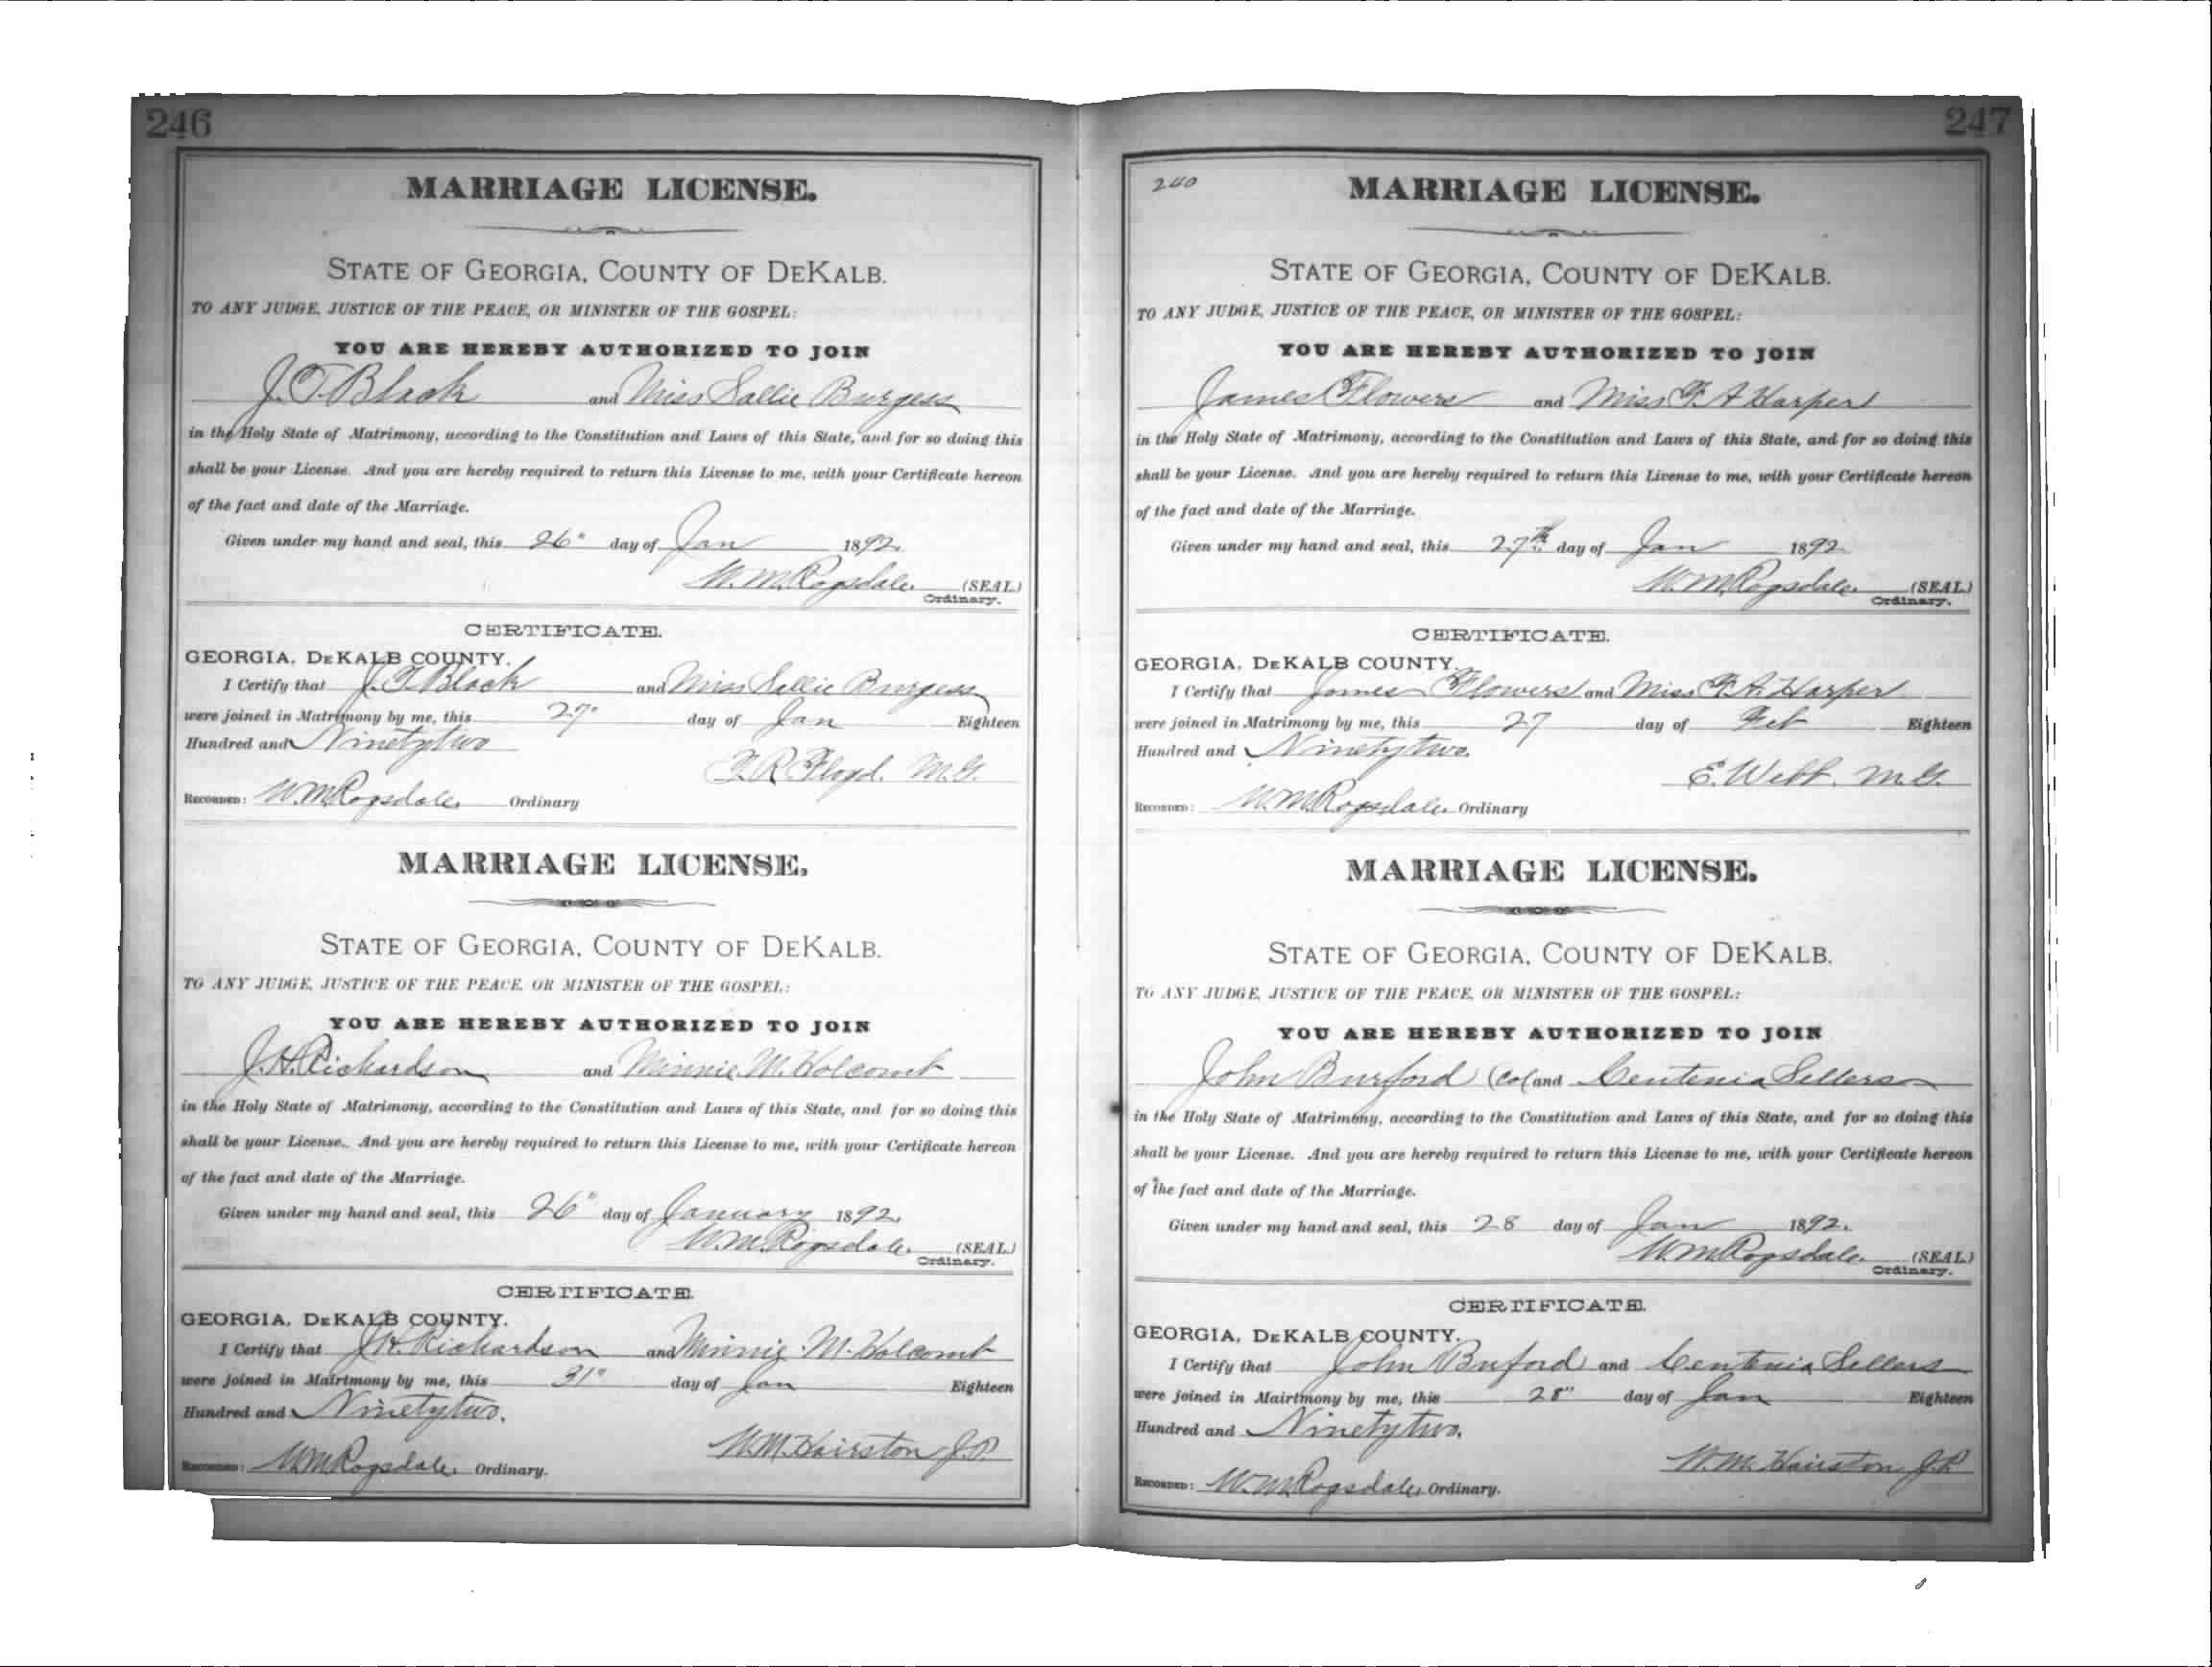 246
MARRIAGE LICENSE.
STATE OF GEORGIA, COUNTY OF DEKALB.
TO ANY JUDGE, JUSTICE OF THE PEACE, OR MINISTER OF THE GOSPEL:
YOU ARE HEREBY AUTHORIZED TO JOIN
J. T. Black and Miss Sallie Burgess
in the Holy State of Matrimony, according to the Constitution and Laws of this State, and for so doing this
shall be your License. And you are hereby required to return this License to me, with your Certificate hereon
of the fact and date of the Marriage.
Given under my hand and seal, this 26" day of Jan 1892.
W. M. Ragsdale. (SEAL)
Ordinary.
CERTIFICATE.
GEORGIA, DEKALB COUNTY.
I Certify that J. T. Black and Miss Sallie Burgess
were joined in Matrimony by me, this 27" day of Jan Eighteen
Hundred and Ninetytwo
R. Floyd. M.G.
RECORDED: W. M. Ragsdale, Ordinary
MARRIAGE LICENSE.
STATE OF GEORGIA, COUNTY OF DEKALB.
TO ANY JUDGE, JUSTICE OF THE PEACE, OR MINISTER OF THE GOSPEL:
YOU ARE HEREBY AUTHORIZED TO JOIN
J. H. Richardson and Minnie M. Holcomb
in the Holy State of Matrimony, according to the Constitution and Laws of this State, and for so doing this
shall be your License. And you are hereby required to return this License to me, with your Certificate hereon
of the fact and date of the Marriage.
Given under my hand and seal, this 26" day of January 1892.
W. M. Ragsdale. (SEAL)
Ordinary.
CERTIFICATE.
GEORGIA, DEKALB COUNTY.
I Certify that J. H. Richardson and Minnie M. Holcomb
were joined in Mairtmony by me, this 31" day of Jan Eighteen
Hundred and Ninetytwo.
W. M. Hairston J.P.
RECORDED: W. M. Ragsdale, Ordinary.
247
240
MARRIAGE LICENSE.
STATE OF GEORGIA, COUNTY OF DEKALB.
TO ANY JUDGE, JUSTICE OF THE PEACE, OR MINISTER OF THE GOSPEL:
YOU ARE HEREBY AUTHORIZED TO JOIN
James Flowers and Miss F. A Harper
in the Holy State of Matrimony, according to the Constitution and Laws of this State, and for so doing this
shall be your License. And you are hereby required to return this License to me, with your Certificate hereon
of the fact and date of the Marriage.
Given under my hand and seal, this 27th day of Jan 1892
W. M. Ragsdale. (SEAL)
Ordinary.
CERTIFICATE.
GEORGIA, DEKALB COUNTY.
I Certify that James Flowers and Miss F. A. Harper
were joined in Matrimony by me, this 27 day of Feb Eighteen
Hundred and Ninetytwo.
E. Webb. M.G.
RECORDED: W. M. Ragsdale, Ordinary
MARRIAGE LICENSE.
STATE OF GEORGIA, COUNTY OF DEKALB.
TO ANY JUDGE, JUSTICE OF THE PEACE, OR MINISTER OF THE GOSPEL:
YOU ARE HEREBY AUTHORIZED TO JOIN
John Burford (Col and Centenia Sellers
in the Holy State of Matrimony, according to the Constitution and Laws of this State, and for so doing this
shall be your License. And you are hereby required to return this License to me, with your Certificate hereon
of the fact and date of the Marriage.
Given under my hand and seal, this 28 day of Jan 1892.
W. M. Ragsdale. (SEAL)
Ordinary.
CERTIFICATE.
GEORGIA, DEKALB COUNTY.
I Certify that John Buford and Centenia Sellers
were joined in Mairtmony by me, this 28" day of Jan Eighteen
Hundred and Ninetytwo.
W. M. Hairston J.P.
RECORDED: W. M. Ragsdale, Ordinary.